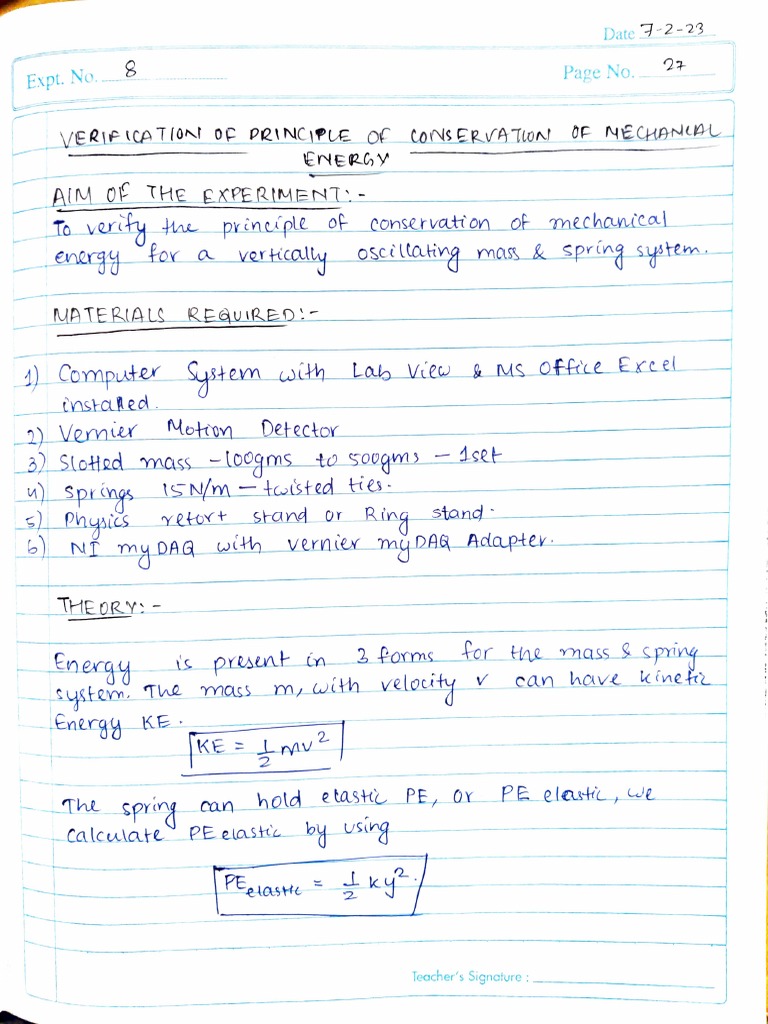 Date 7-2-23
Expt. No. 8
Page No. 27
VERIFICATION OF PRINCIPLE OF CONSERVATION OF MECHANICAL
ENERGY
AIM OF THE EXPERIMENT:-
To verify the principle of conservation of mechanical
energy for a vertically oscillating mass & spring system.
MATERIALS REQUIRED:-
1) Computer System with Lab View & MS Office Excel
installed.
2) Vernier Motion Detector
3) Slotted mass -100gms to 500gms - 1set
4) Springs 15N/m - twisted ties.
5) Physics retort stand or Ring stand.
6) NI myDAQ with vernier myDAQ Adapter.
THEORY:-
Energy is present in 3 forms for the mass & spring
system. The mass m, with velocity v can have kinetic
Energy KE.
KE = 1/2 mv²
The spring can hold elastic PE, or PE elastic, we
calculate PE elastic by using
PE elastic = 1/2 ky².
Teacher's Signature :